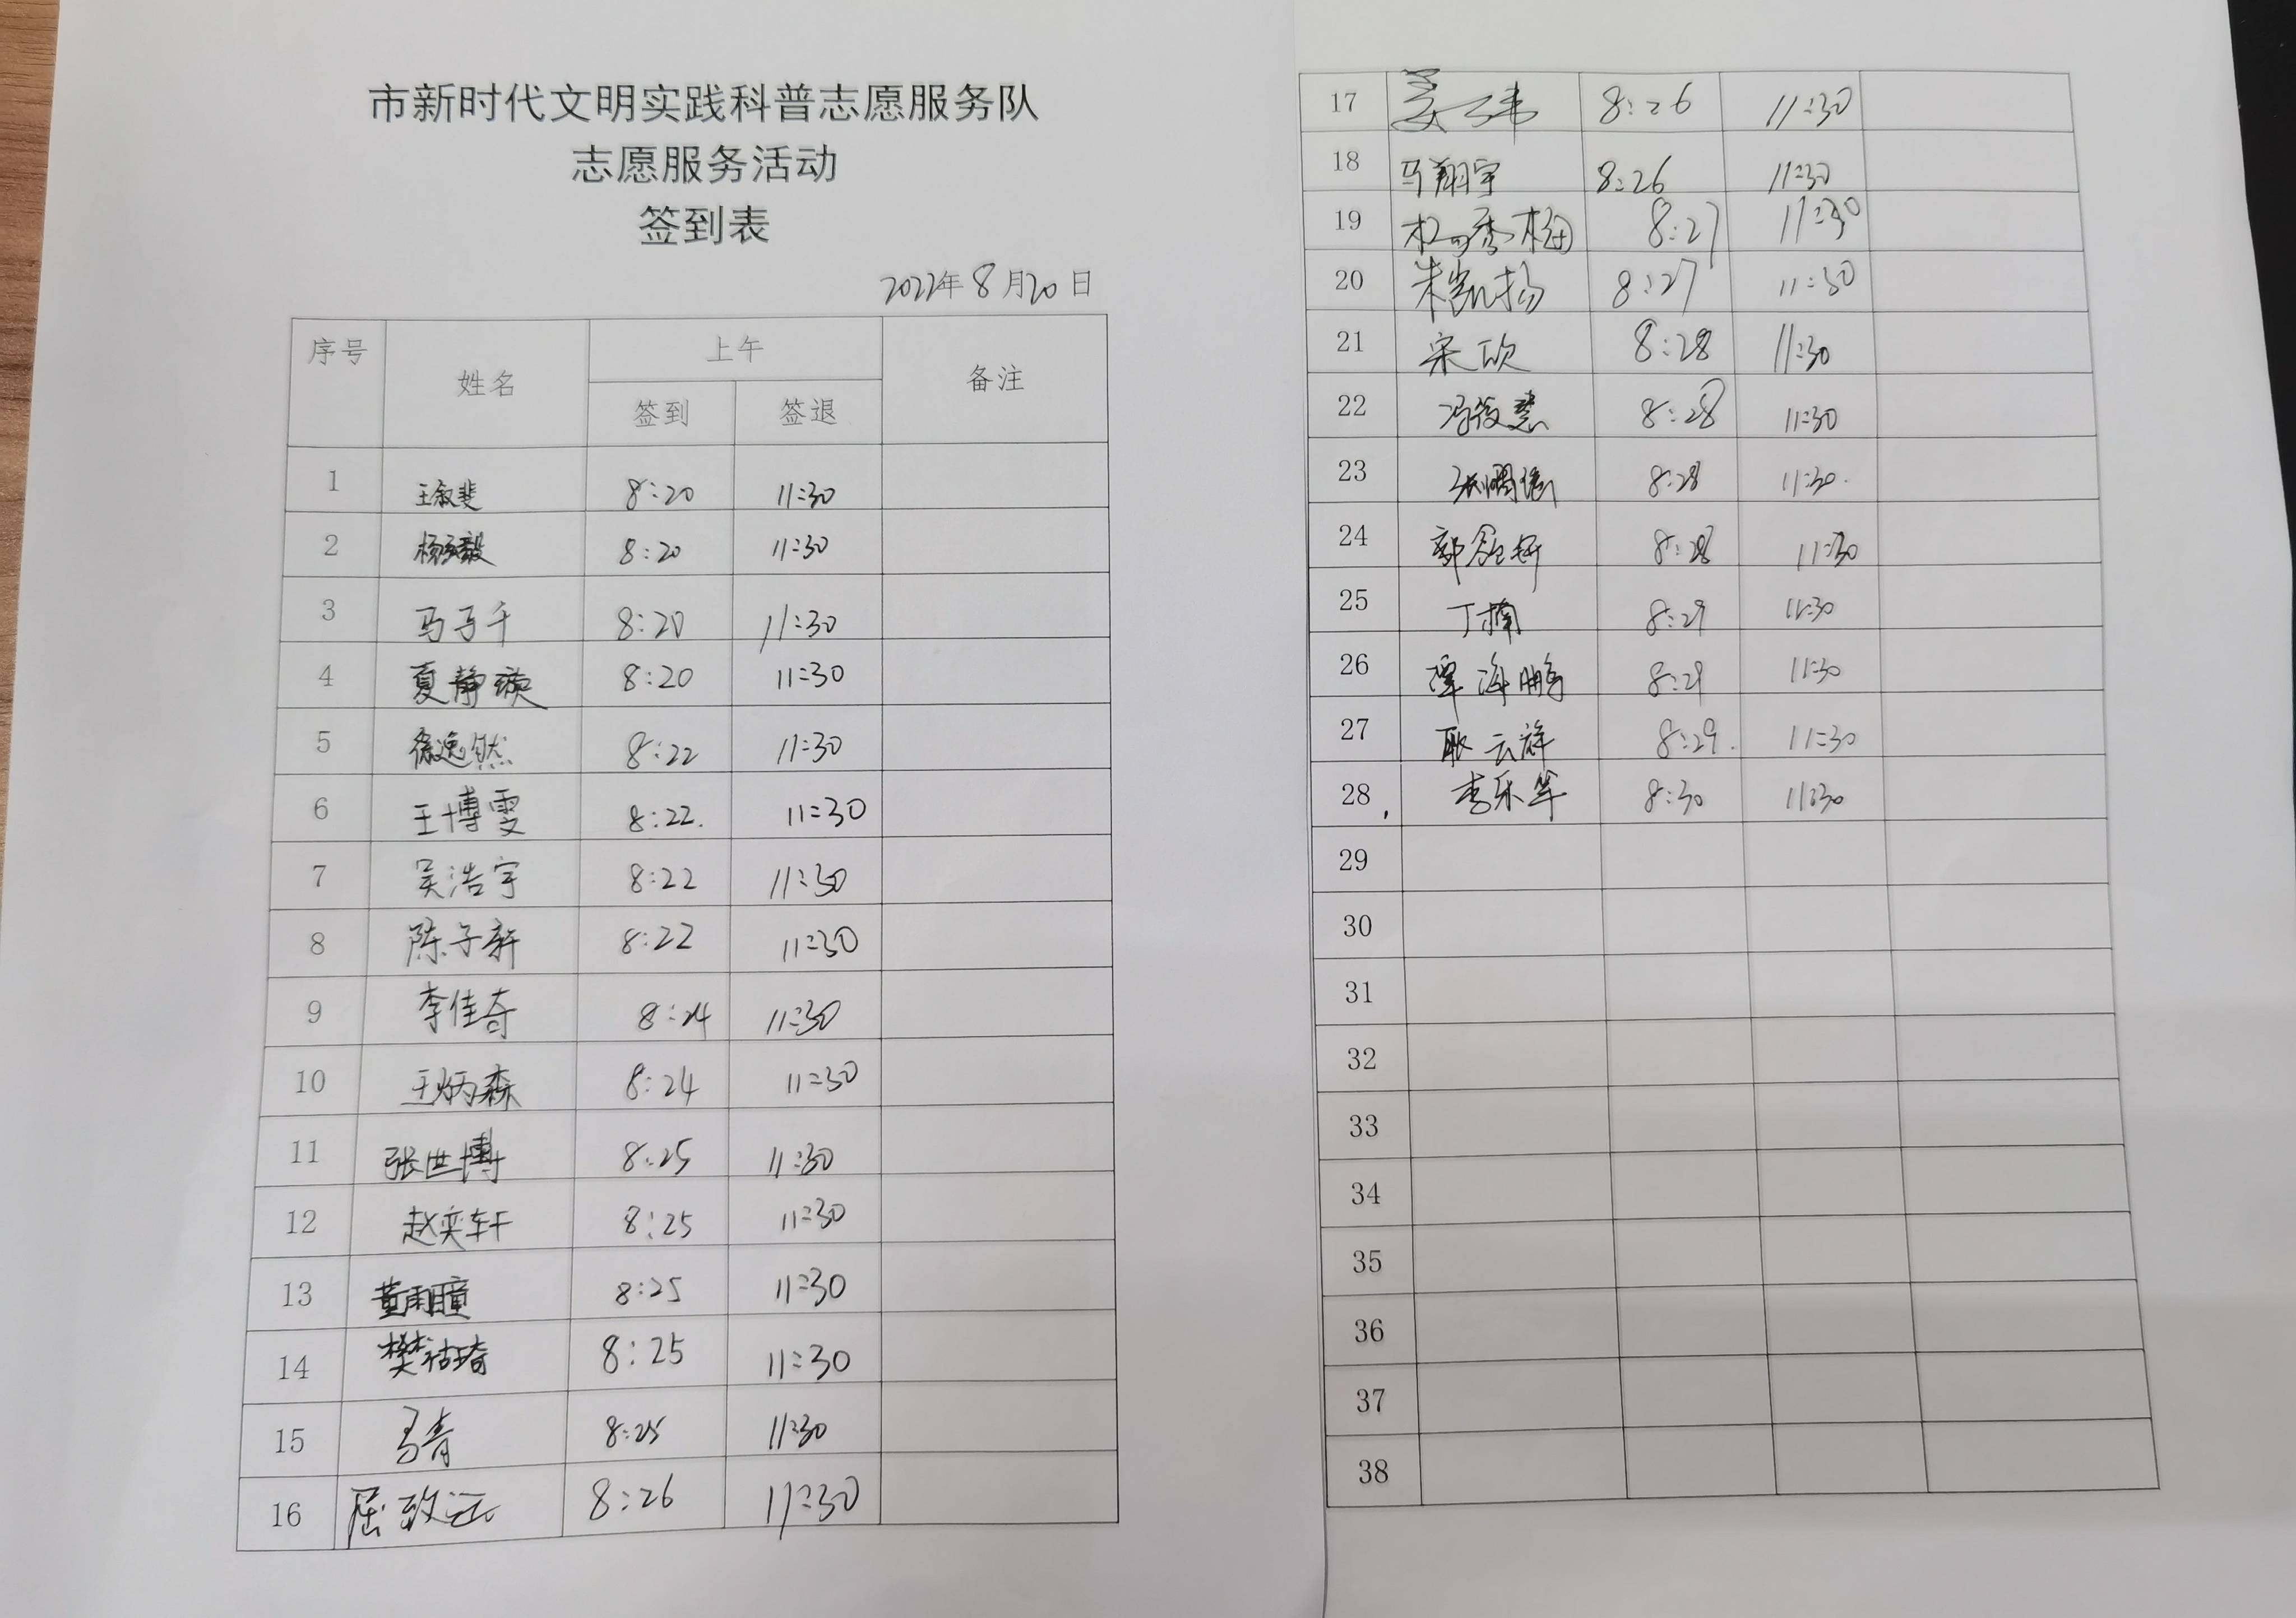 市新时代文明实践科普志愿服务队
志愿服务活动
签到表
2022年8月20日
序号 姓名 上午 备注
签到 签退
1 王叙斐 8:20 11:30
2 8:20 11:30
3 马子千 8:20 11:30
4 夏静璇 8:20 11:30
5 徐逸然 8:22 11:30
6 王博雯 8:22. 11:30
7 吴浩宇 8:22 11:30
8 陈子新 8:22 11:30
9 李佳奇 8:24 11:30
10 王炳森 8:24 11:30
11 张世博 8:25 11:30
12 赵奕轩 8:25 11:30
13 董雨瞳 8:25 11:30
14 8:25 11:30
15 马青 8:25 11:30
16 屈致远 8:26 11:30
17 8:26 11:30
18 马翔宇 8:26 11:30
19 8:27 11:30
20 朱凯扬 8:27 11:30
21 宋欣 8:28 11:30
22 冯筱慧 8:28 11:30
23 8:28 11:30.
24 8:28 11:30
25 丁楠 8:29 11:30
26 覃海鹏 8:29 11:30
27 耿云祥 8:29. 11:30
28 李乐军 8:30 11:30
29
30
31
32
33
34
35
36
37
38